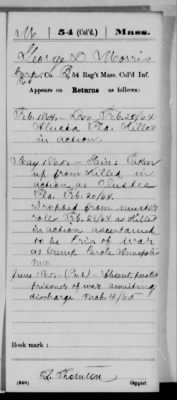 M 54 (Col'd.) Mass.
George D. Morris
Corp., Co. B, 54 Reg't Mass. Col'd Inf.
Appears on
Returns as follows:
Feb. 1864.- Loss Feb. 20/64
Olustee Fla. Killed
in action.
May 1865.- Gain: Taken
up from killed in
action at Olustee
Fla. Feb. 20/64
Dropped from muster
roll Feb. 20/64 as killed
in action ascertained
to be Pris of war
at Camp Parole Annapolis
Md
June 1865- Absent, parole
prisoner of war awaiting
discharge Mch 4/65
Book mark:
Thornton
Copyist.